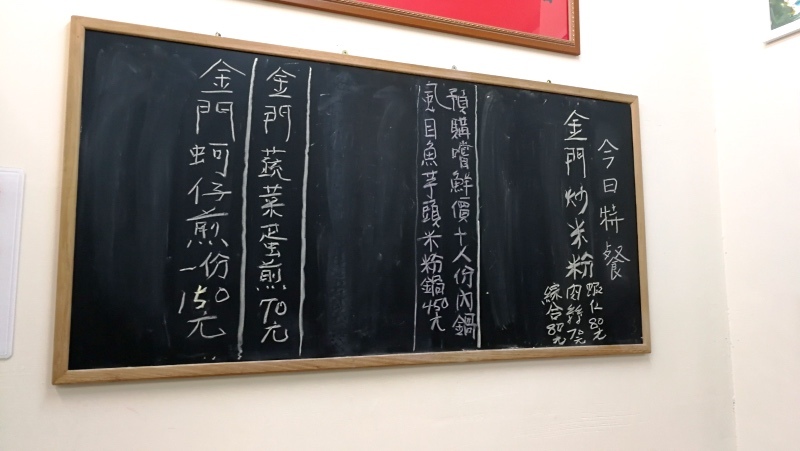 今日特餐
金門炒米粉
蝦仁80元
肉絲70元
綜合80元
預購嚐鮮價十人份內鍋
虱目魚芋頭米粉鍋450元
金門蔬菜蛋煎70元
金門蚵仔煎一份150元